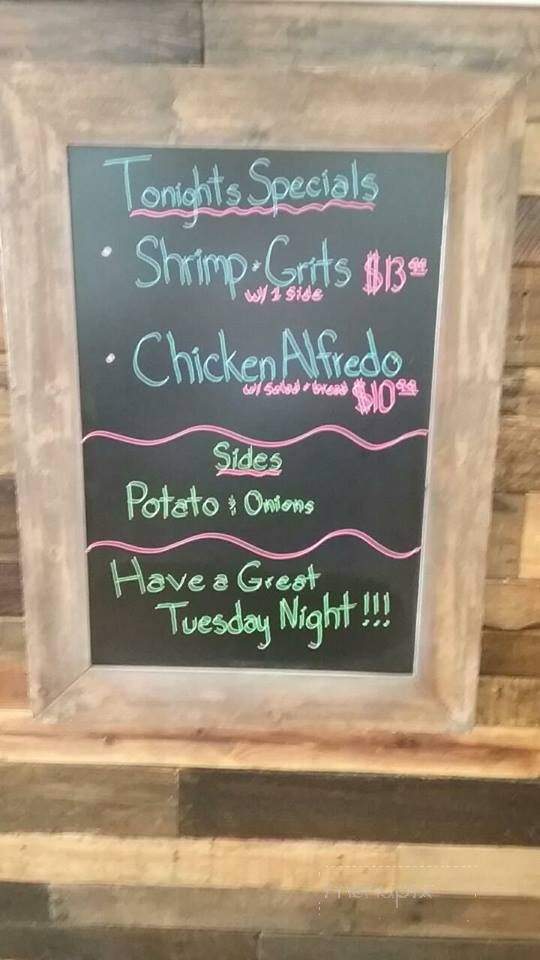 Tonights Specials
• Shrimp & Grits $13.00
w/ 1 Side
• Chicken Alfredo
w/ Salad & bread $10.00
Sides
Potato & Onions
Have a Great
Tuesday Night!!!
menupix